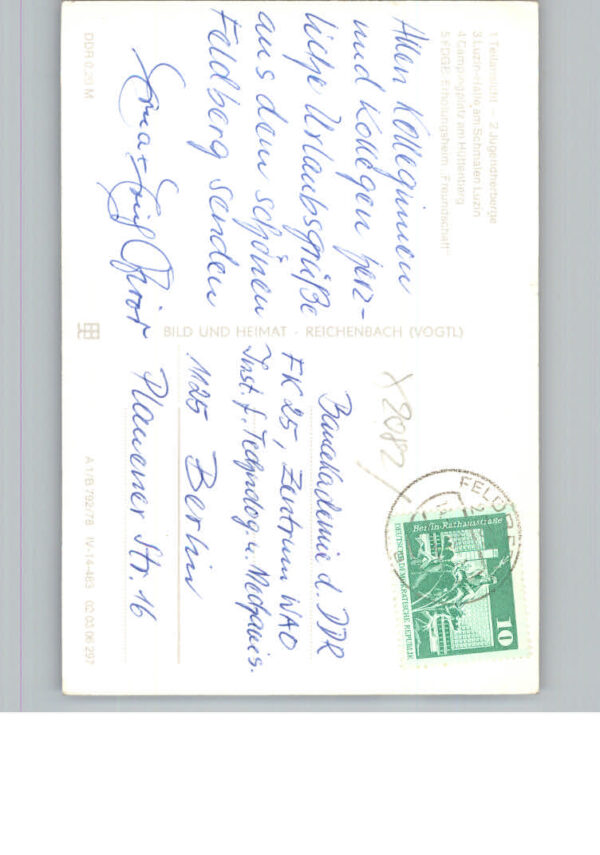 1 Teilansicht - 2 Jugendherberge
3 Luzin-Halle am Schmalen Luzin
4 Campingplatz am Hüttenberg
5 FDGB-Erholungsheim „Freundschaft“
Allen Kolleginnen
und Kollegen herz-
liche Urlaubsgrüße
aus dem schönen
Feldberg senden
Erna + Erich
DDR 0,20 M
BILD UND HEIMAT - REICHENBACH (VOGTL)
X 2082/
FELDBE
Berlin-Rathausstraße
DEUTSCHE DEMOKRATISCHE REPUBLIK
10
Bauakademie d. DDR
FK 25, Zentrum WAO
Inst. f. Technolog. u. Mechanis.
1125 Berlin
Plauener Str. 16
A 1/B 792/78 IV-14-483 02 03 06 297